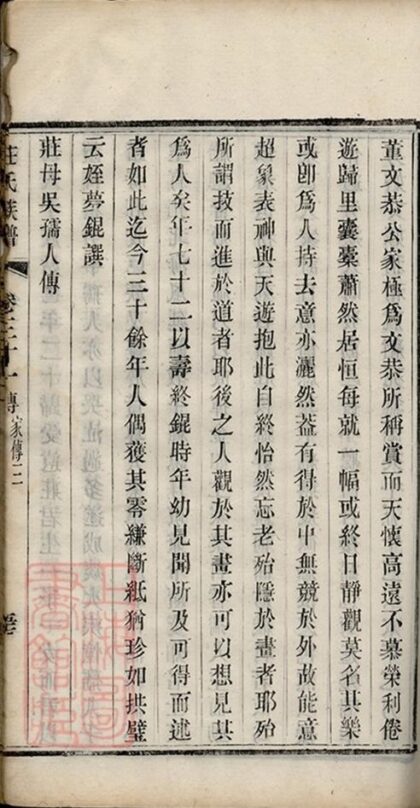 董文恭公家極為文恭所稱賞而天懷高遠不慕榮利倦
遊歸里囊橐蕭然居恒每就一幅或終日靜觀莫名其樂
或卽爲人持去意亦灑然葢有得於中無競於外故能意
超象表神與天遊抱此自終怡然忘老殆隱於畫者耶殆
所謂技而進於道者耶後之人觀於其畫亦可以想見其
爲人矣年七十二以壽終錕時年幼見聞所及可得而述
者如此迄今三十餘年人偶獲其零縑斷紙猶珍如拱璧
云姪夢錕譔
莊母吳孺人傳
莊氏族譜
傳
家傳三